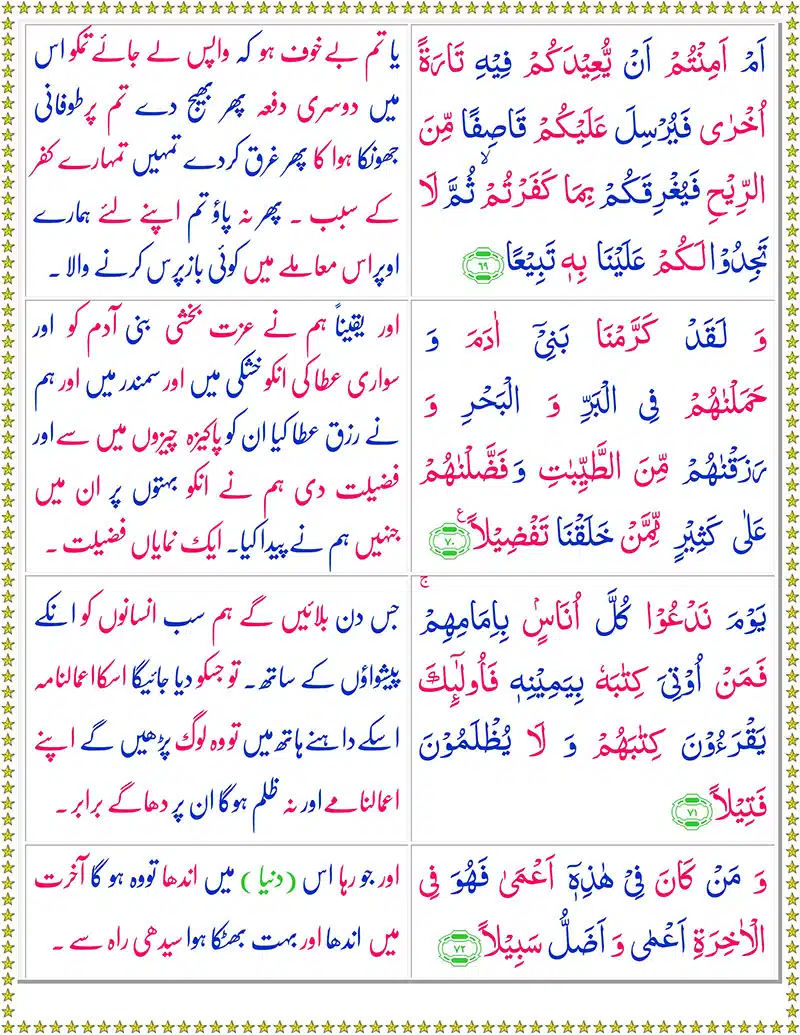 اَمْ اَمِنْتُمْ اَنْ يُّعِيْدَكُمْ فِيْهِ تَارَةً
اُخْرٰى فَيُرْسِلَ عَلَيْكُمْ قَاصِفًا مِّنَ
الرِّيْحِ فَيُغْرِقَكُمْ بِمَا كَفَرْتُمْ ۙ ثُمَّ لَا
تَجِدُوْا لَكُمْ عَلَيْنَا بِهٖ تَبِيْعًا ﴿۶۹﴾
یا تم بے خوف ہو کہ واپس لے جائے تمکو اس
میں دوسری دفعہ پھر بھیج دے تم پر طوفانی
جھونکا ہوا کا پھر غرق کردے تمہیں تمہارے کفر
کے سبب ۔ پھر نہ پاؤ تم اپنے لئے ہمارے
اوپر اس معاملے میں کوئی بازپرس کرنے والا ۔
وَ لَقَدْ كَرَّمْنَا بَنِىْٓ اٰدَمَ وَ
حَمَلْنٰهُمْ فِى الْبَرِّ وَ الْبَحْرِ وَ
رَزَقْنٰهُمْ مِّنَ الطَّيِّبٰتِ وَ فَضَّلْنٰهُمْ
عَلٰى كَثِيْرٍ مِّمَّنْ خَلَقْنَا تَفْضِيْلًا ﴿۷۰﴾ ع
اور یقیناً ہم نے عزت بخشی بنی آدم کو اور
سواری عطا کی انکو خشکی میں اور سمندر میں اور ہم
نے رزق عطا کیا ان کو پاکیزہ چیزوں میں سے اور
فضیلت دی ہم نے انکو بہتوں پر ان میں
جنہیں ہم نے پیدا کیا۔ ایک نمایاں فضیلت ۔
يَوْمَ نَدْعُوْا كُلَّ اُنَاسٍۢ بِاِمَامِهِمْ ۚ
فَمَنْ اُوْتِىَ كِتٰبَهٗ بِيَمِيْنِهٖ فَاُولٰٓئِكَ
يَقْرَءُوْنَ كِتٰبَهُمْ وَ لَا يُظْلَمُوْنَ
فَتِيْلًا ﴿۷۱﴾
جس دن بلائیں گے ہم سب انسانوں کو انکے
پیشواؤں کے ساتھ۔ تو جسکو دیا جائیگا اسکا اعمالنامہ
اسکے داہنے ہاتھ میں تو وہ لوگ پڑھیں گے اپنے
اعمالنامے اور نہ ظلم ہوگا ان پر دھاگے برابر ۔
وَ مَنْ كَانَ فِىْ هٰذِهٖٓ اَعْمٰى فَهُوَ فِى
الْاٰخِرَةِ اَعْمٰى وَ اَضَلُّ سَبِيْلًا ﴿۷۲﴾
اور جو رہا اس (دنیا) میں اندھا تو وہ ہو گا آخرت
میں اندھا اور بہت بھٹکا ہوا سیدھی راہ سے ۔